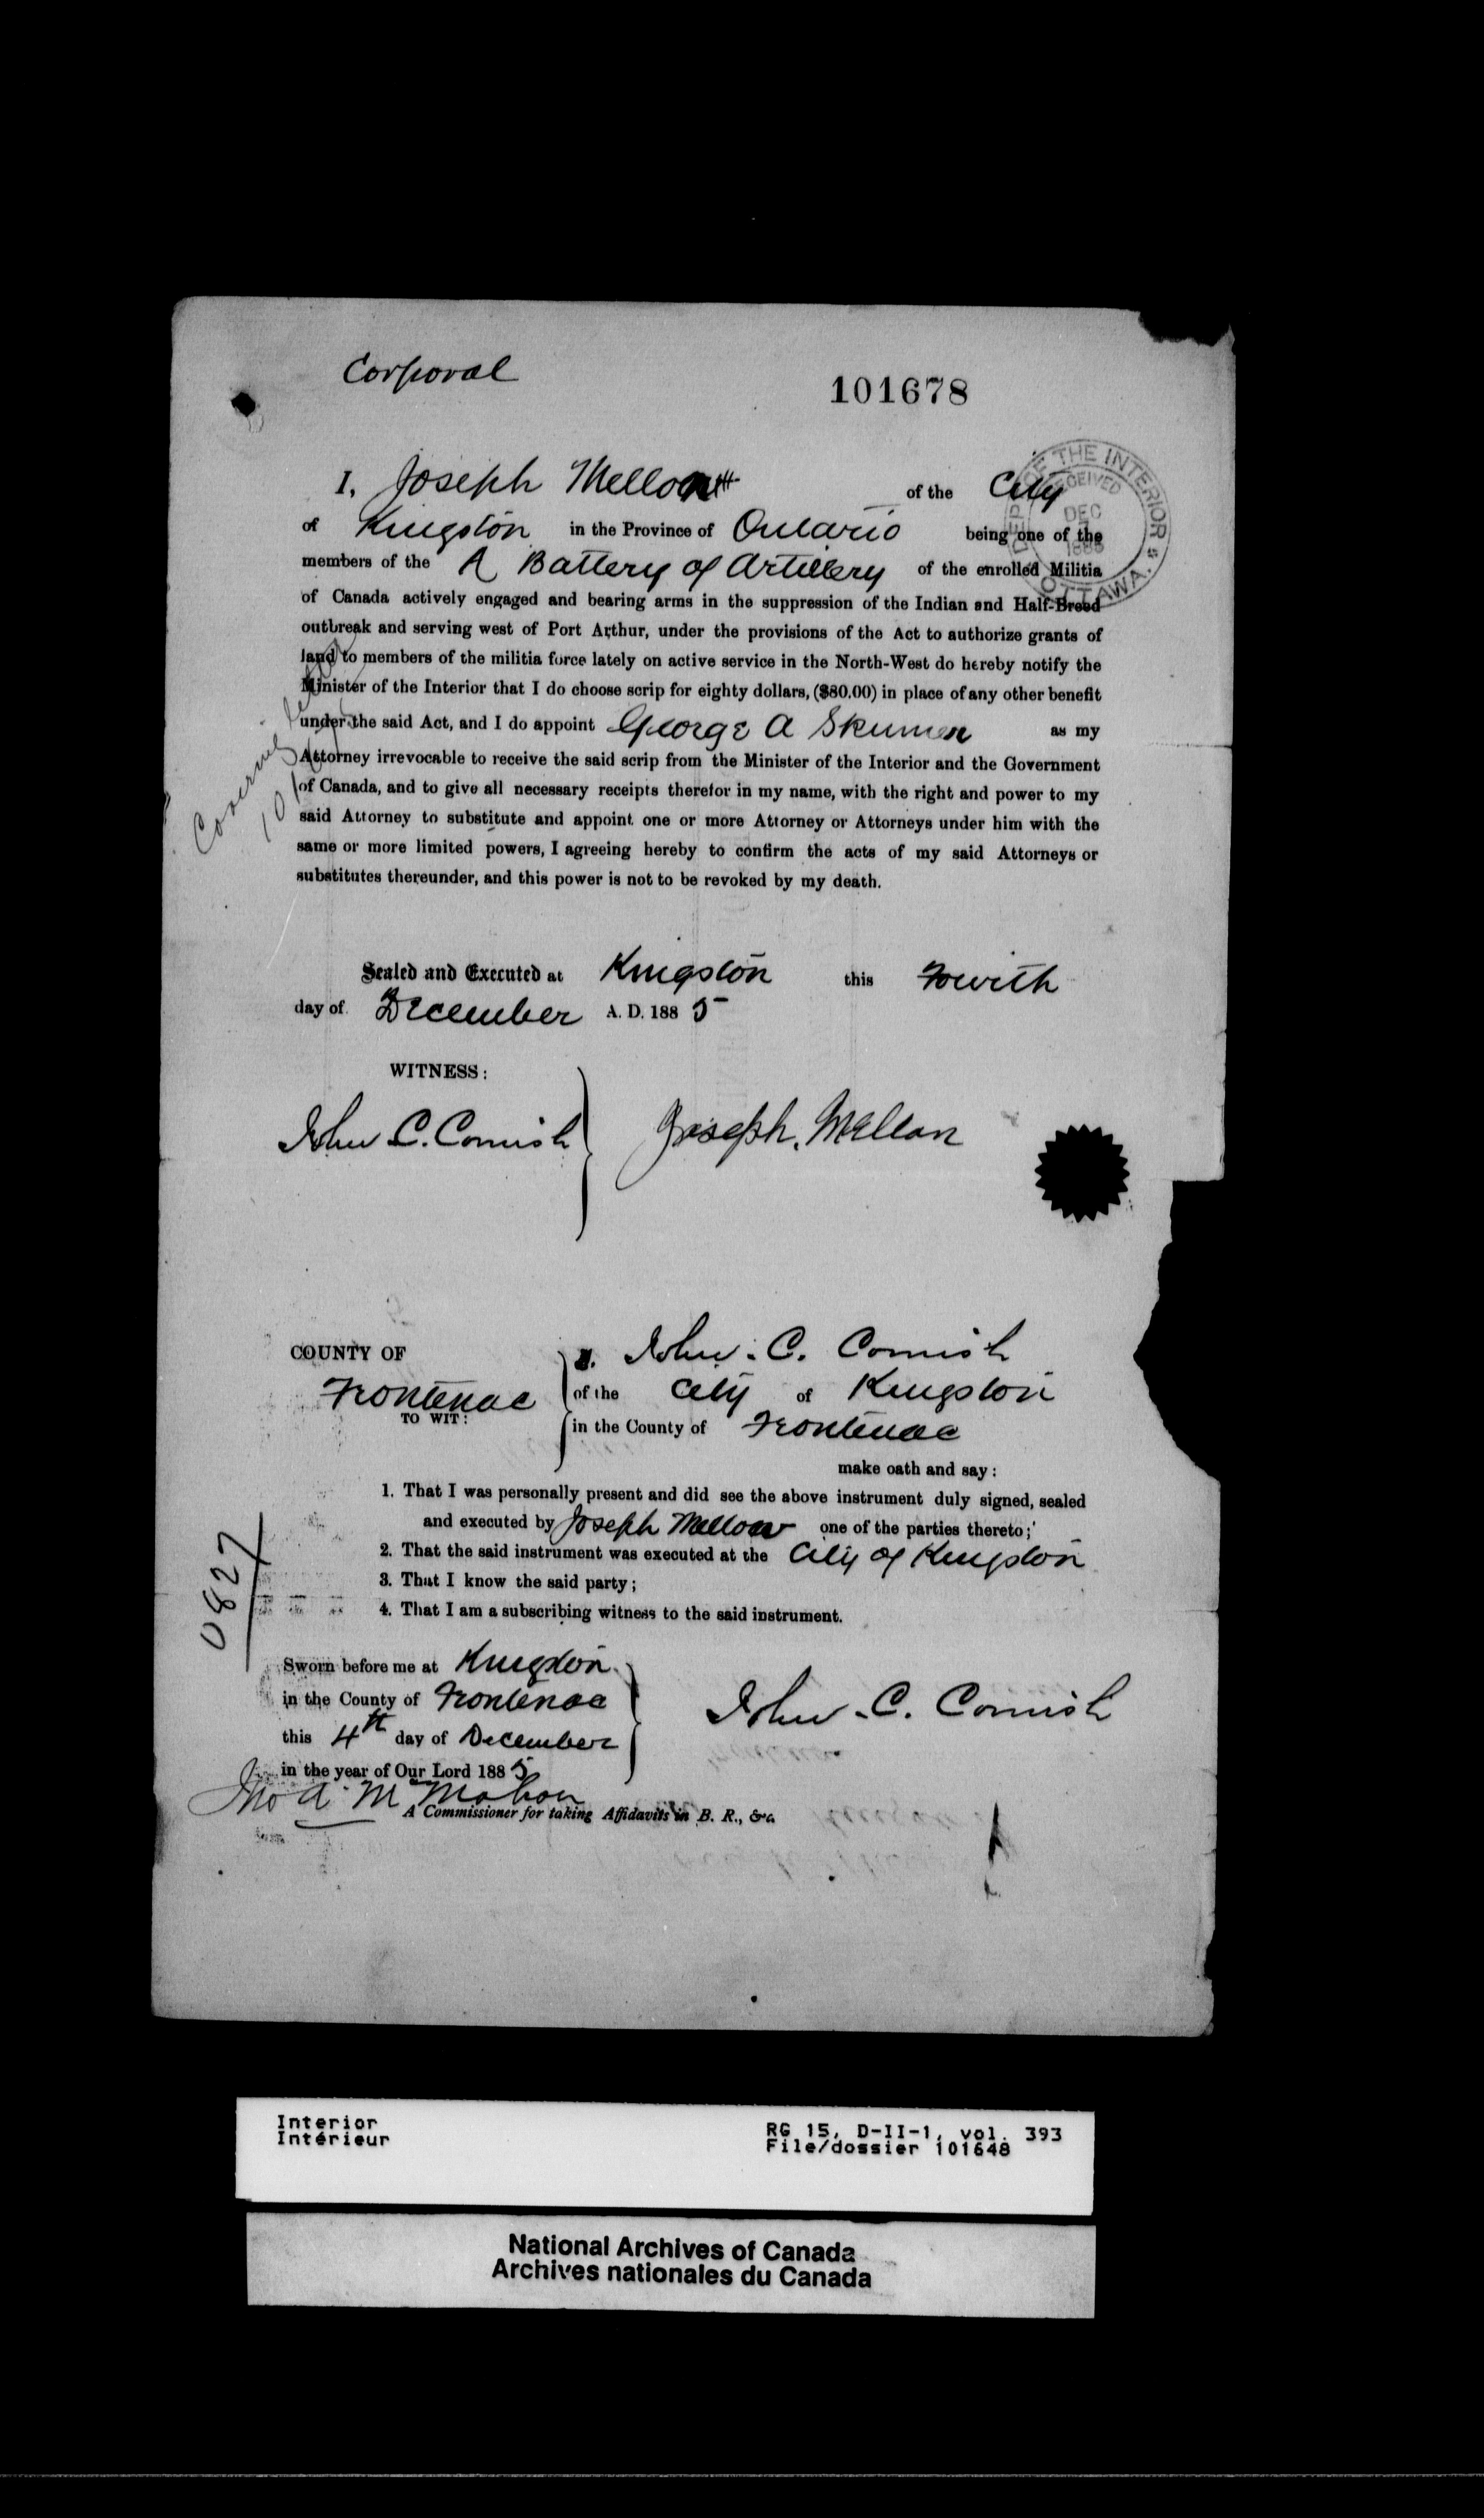 Corporal
101678
DEPT OF THE INTERIOR
RECEIVED
DEC
7
1885
OTTAWA.
I, Joseph Mellon of the City
of Kingston in the Province of Ontario being one of the
members of the A Battery of Artillery of the enrolled Militia
of Canada actively engaged and bearing arms in the suppression of the Indian and Half-Breed
outbreak and serving west of Port Arthur, under the provisions of the Act to authorize grants of
land to members of the militia force lately on active service in the North-West do hereby notify the
Minister of the Interior that I do choose scrip for eighty dollars, ($80.00) in place of any other benefit
under the said Act, and I do appoint George A Skumen as my
Attorney irrevocable to receive the said scrip from the Minister of the Interior and the Government
of Canada, and to give all necessary receipts therefor in my name, with the right and power to my
said Attorney to substitute and appoint one or more Attorney or Attorneys under him with the
same or more limited powers, I agreeing hereby to confirm the acts of my said Attorneys or
substitutes thereunder, and this power is not to be revoked by my death.
Sealed and Executed at Kingston this Fourth
day of December A. D. 1885
WITNESS:
John C. Cornish Joseph Mellon
COUNTY OF
Frontenac
TO WIT:
I. John C. Cornish
of the City of Kingston
in the County of Frontenac
make oath and say:
1. That I was personally present and did see the above instrument duly signed, sealed
and executed by Joseph Mellon one of the parties thereto;
2. That the said instrument was executed at the City of Kingston
3. That I know the said party;
4. That I am a subscribing witness to the said instrument.
0827
Sworn before me at Kingston
in the County of Frontenac
this 4th day of December
in the year of Our Lord 1885
John C. Cornish
Jno A. McMahon
A Commissioner for taking Affidavits in B. R., &c.
Interior
Intérieur
RG 15, D-II-1, vol. 393
File/dossier 101648
National Archives of Canada
Archives nationales du Canada